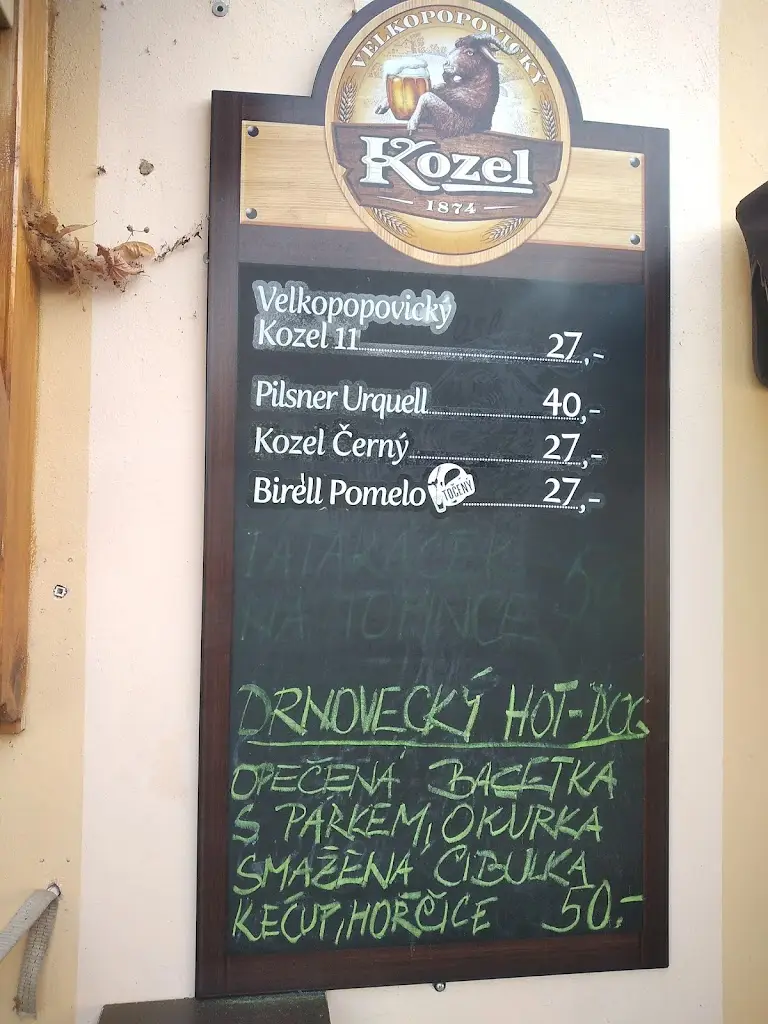 VELKOPOPOVICKÝ
Kozel
1874
Velkopopovický
Kozel 11 27,-
Pilsner Urquell 40,-
Kozel Černý 27,-
Birell Pomelo TOČENÝ 27,-
NA
DRNOVECKÝ HOT-DOG
OPEČENÁ BAGETKA
S PÁRKEM, OKURKA
SMAŽENÁ CIBULKA
KEČUP, HOŘČICE 50,-